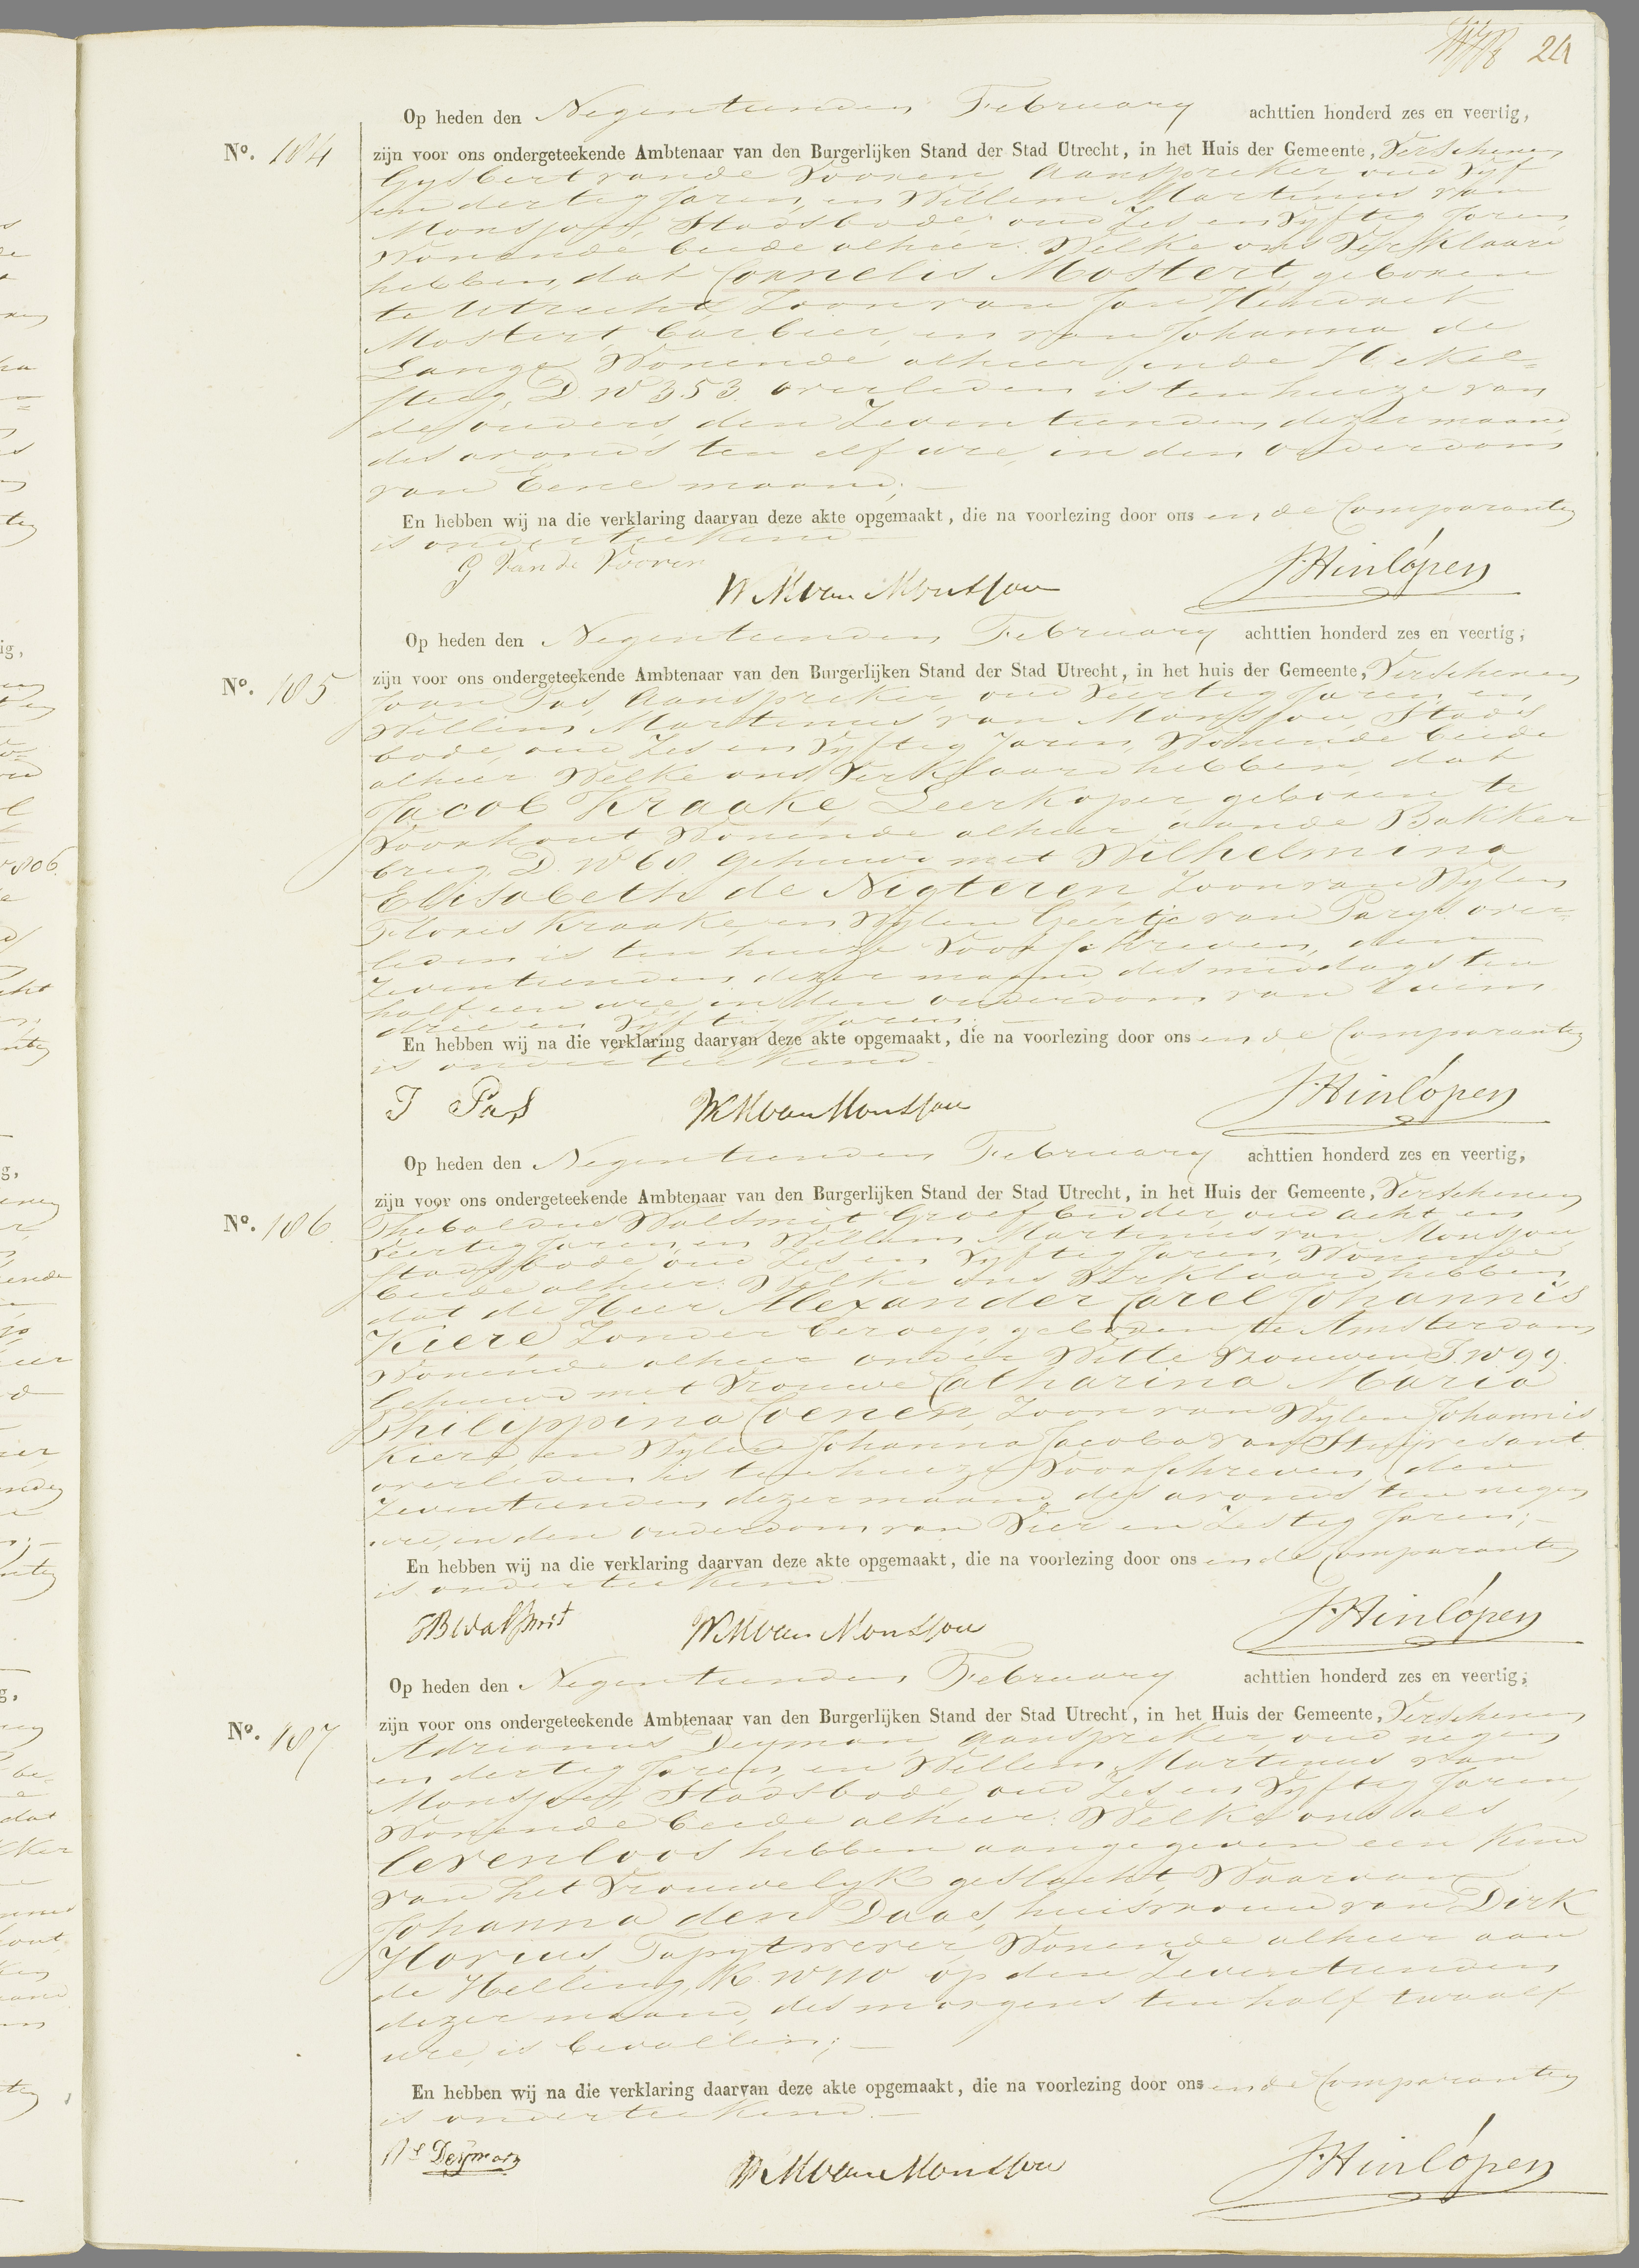 24
Op heden den Negentienden February achttien honderd zes en veertig,
No. 184 zijn voor ons ondergeteekende Ambtenaar van den Burgerlijken Stand der Stad Utrecht, in het Huis der Gemeente, Verschenen
Gysbert vande Vooren, Aanspreker, oud Vyf
en dertig Jaren, en Willem Martinus van
Monsjou, Stadsbode, oud Zes en Vyftig Jaren
Wonende beide alhier: Welke ons Verklaard
hebben, dat Cornelis Mostert, geboren
te Utrecht, Zoon van Jan Hendrik
Mostert, barbier, en van Johanna de
Lange, Wonende alhier inde Hekel=
steeg, D. No 353. overleden is ten huize van
des ouders, den Zeventienden dezer maand,
des avonds ten elf ure, in den ouderdom
van Eene maand;
En hebben wij na die verklaring daarvan deze akte opgemaakt, die na voorlezing door ons en de Comparanten
is onderteekend
G Van de Vooren
W M van Monsjou
J Hinlópen
Op heden den Negentienden February achttien honderd zes en veertig,
No. 185 zijn voor ons ondergeteekende Ambtenaar van den Burgerlijken Stand der Stad Utrecht, in het huis der Gemeente, Verschenen
Joan Pas, Aanspreker, oud Veertig Jaren, en
Willem Martinus van Monsjou, Stads
bode, oud Zes en Vyftig Jaren, Wonende beide
alhier: Welke ons Verklaard hebben, dat
Jacob Kraake, Leerkoper, geboren te
Voorhout, Wonende alhier aande Bakker
brug, D. No 68. Gehuwd met Wilhelmina
Elisabeth de Nigteren, Zoon van Wylen
Floris Kraake, en Wylen Geertje van Parys. over=
leden is ten huize Voorschreven, den
Zeventienden dezer maand, des middags ten
half een ure, in den ouderdom van ruim
drie en Vyftig Jaren;
En hebben wij na die verklaring daarvan deze akte opgemaakt, die na voorlezing door ons en de Comparanten
is onderteekend.
J Pas
W M van Monsjou
J Hinlópen
Op heden den Negentienden February achttien honderd zes en veertig,
zijn voor ons ondergeteekende Ambtenaar van den Burgerlijken Stand der Stad Utrecht, in het Huis der Gemeente, Verschenen
No. 186. Thebaldus Walsmit, Groefbidder, oud acht en
Veertig Jaren, en Willem Martinus van Monsjou
Stadsbode, oud Zes en Vyftig Jaren, Wonende
beide alhier: Welke ons Verklaard hebben,
dat de Heer Alexander Carel Johannis
Kiere, Zonder beroep, geboren te Amsterdam,
Wonende alhier onder Witte Vrouwen I. No 99.
Gehuwd met Vrouwe Catharina Maria
Philippina Coenen, Zoon van Wylen Johannis
Kiere, en Wylen Johanna Jacoba van Stuijvesant.
overleden is ten huize Voorschreven, den
Zeventienden dezer maand, des avonds ten negen
ure, in den ouderdom van Vier en Zestig Jaren;
En hebben wij na die verklaring daarvan deze akte opgemaakt, die na voorlezing door ons en de Comparanten
is onderteekend
T B Walsmit
W M van Monsjou
J Hinlópen
Op heden den Negentienden February achttien honderd zes en veertig,
No. 187 zijn voor ons ondergeteekende Ambtenaar van den Burgerlijken Stand der Stad Utrecht, in het Huis der Gemeente, Verschenen
Adrianus Deyman, Aanspreker, oud negen
en dertig Jaren, en Willem Martinus van
Monsjou, Stadsbode, oud Zes en Vyftig Jaren,
Wonende beide alhier: Welke ons als
levenloos hebben aangegeven een Kind
van het Vrouwelyk geslacht, Waarvan
Johanna den Daas, huisvrouw van Dirk
Florius, Tapytwever, Wonende alhier aan
de Helling, K. No 110 op den Zeventienden
dezer maand, des morgens ten half twaalf
ure, is bevallen;
En hebben wij na die verklaring daarvan deze akte opgemaakt, die na voorlezing door ons en de Comparanten
is onderteekend.
As Deyman
W M van Monsjou
J Hinlópen